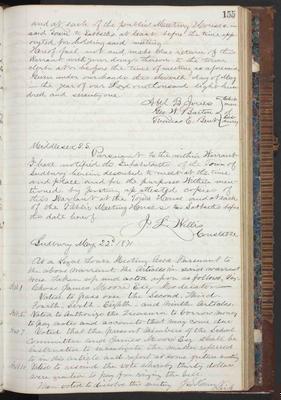 155
and at each of the public Meeting Houses in
said town ten Sabbaths at least before the time app
ointed for holding said meeting.
Hereof fail not and make due return of this
Warrant with your doings thereon to the Town
Clerk at or before the time of meeting as aforesaid
Given under our hands this seventh day of May
in the year of our Lord one thousand eight hun
dred and seventy one.
Geo. W. Barton
Thomas C. Bent
Middlesex S.S.
Pursuant to the within Warrant
I have notified the Inhabitants of the Town of
Sudbury herein described to meet at the time
and place and for the purposes within men
tioned by posting up attested copies of
this Warrant at the Town House and at each
of the Public Meeting Houses ten Sabbaths before
the date hereof
J. L. Willis
Constable
Sudbury May 22d 1871
At a Legal Town Meeting held Pursuant to
the above Warrant the Articles in said warrant
were taken up and acted upon as follows, viz
Art 1 Chose James Moore Esq. Moderator
Voted to pass over the Second, Third
Fourth, Sixth, Eighth and Ninth Articles.
Art 5 Voted to Authorize the Treasurer to borrow money
to pay orders and accounts that may come due
Art 7 Voted that the present Members of the School
Committee and James Moore Esq. shall be
instructed to investigate the matter referred
to in this article and report at some future meeting
Art 10 Voted to the vote whereby thirty dollars
Then voted to dissolve this meeting